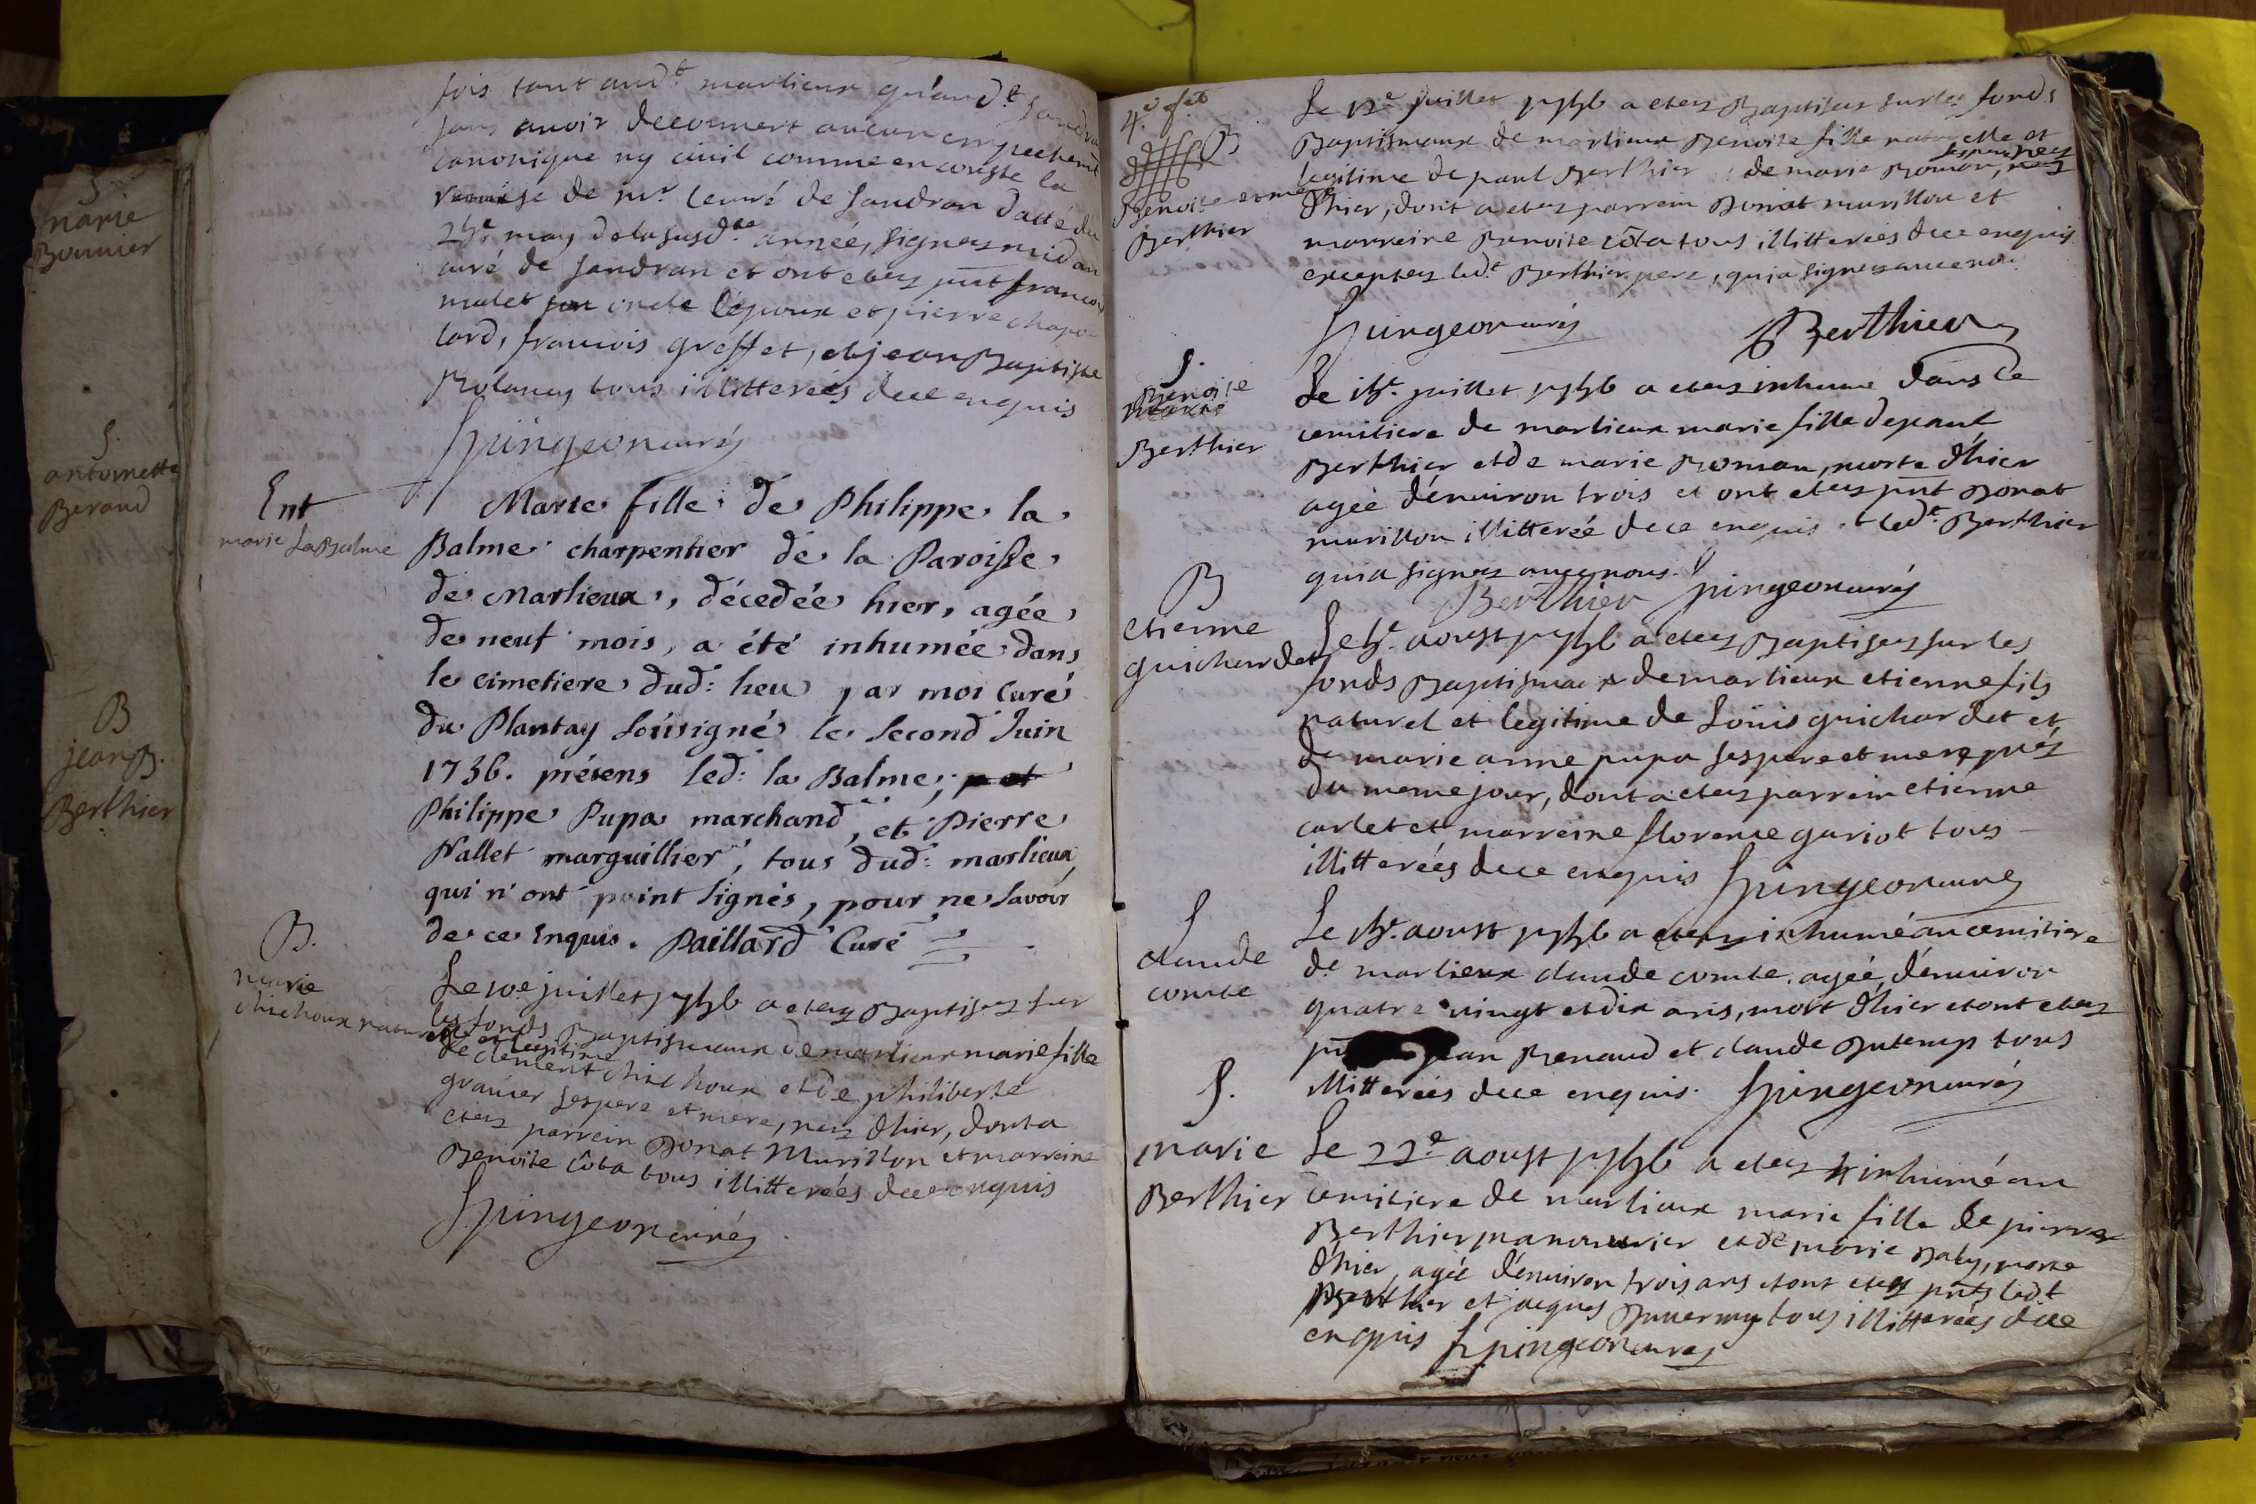 S
marie
Bonnier
S.
antoinette
Beraud
B
jean B.
Berthier
fois tant aud.t marlieux qu'aud.t Sandran
sans avoir decouvert aucun empechemt
canonique ny civil comme en conste la
remise de mr. le curé de Sandran datté du
may de la susd.te année, signez midan
curé de Sandran et ont etez pnt francois
malet son oncle l'epoux et pierre chapo-
lard, francois greffet, et jean Baptiste
Rolancy tous illitterées de ce enquis
Spingeon curéz
Ent
marie La Balme
Marie fille de Philippe la
Balme charpentier de la Paroisse
de Marlieux, décedée hier, agée
de neuf mois, a été inhumée dans
le cimetiere dud: lieu par moi Curé
du Plantay soûsigné le second Juin
1736. présens led: la Balme,
Philippe Pupa marchand, et Pierre
Nallet marguillier, tous dud: marlieux
qui n'ont point signés, pour ne savoir
de ce enquis. Paillard Curé
B.
marie
chichoux
Le 10e juillet 1736 a etez Baptisez sur
les fonds Baptismaux de marlieux marie fille
naturelle et legitime
de clement chichoux et de philiberte
granier ses pere et mere, nez d'hier, dont a
etez parrein Donat Murillon et marreine
Benoite Côta tous illitterées de ce enquis
Spingeon curéz
4.e f.et
B
Benoite et mere
Berthier
Le 12e juillet 1736 a etez Baptisez sur les fonds
Baptismaux de marlieux Benoite fille naturelle et
legitime de paul Berthier de marie Roman, nez
d'hier, dont a etez parrein Donat murillon et
marreine Benoite Côta tous illitterées de ce enquis
exceptez led.t Berthier pere, qui a signez avec nous
Spingeon curéz Berthier
S.
Benoite
marie
Berthier
Le 15e. juillet 1736 a etez inhumé dans le
cemitiere de marlieux marie fille de paul
Berthier et de marie Roman, morte d'hier
agée d'environ trois et ont etez pnt Donat
murillon illitterée de ce enquis et led.t Berthier
qui a signez avec nous.
Berthier Spingeon curéz
B
etienne
guichardet
Le 5e. aoust 1736 a etez Baptisez sur les
fonds Baptismaux de marlieux etienne fils
naturel et legitime de Loüis guichardet et
de marie anne pupa ses pere et mere, nez
du meme jour, dont a etez parrein etienne
carlet et marreine florence gariot tous
illitterées de ce enquis Spingeon curéz
S
claude
comte
Le 15e. aoust 1736 a etez inhumé au cemitiere
de marlieux claude comte, agée, d'environ
quatre vingt et dix ans, mort d'hier et ont etez
jean Renaud et claude Dutemps tous
illitterées de ce enquis. Spingeon curéz
S.
marie
Berthier
Le 22e aoust 1736 a etez inhumé au
cemitiere de marlieux marie fille de pierre
Berthier manouvrier et de marie Baby, morte
d'hier, agée d'environ trois ans et ont etez pnts led.t
Berthier et jacques Duvernay tous illitterées de ce
enquis Spingeon curéz